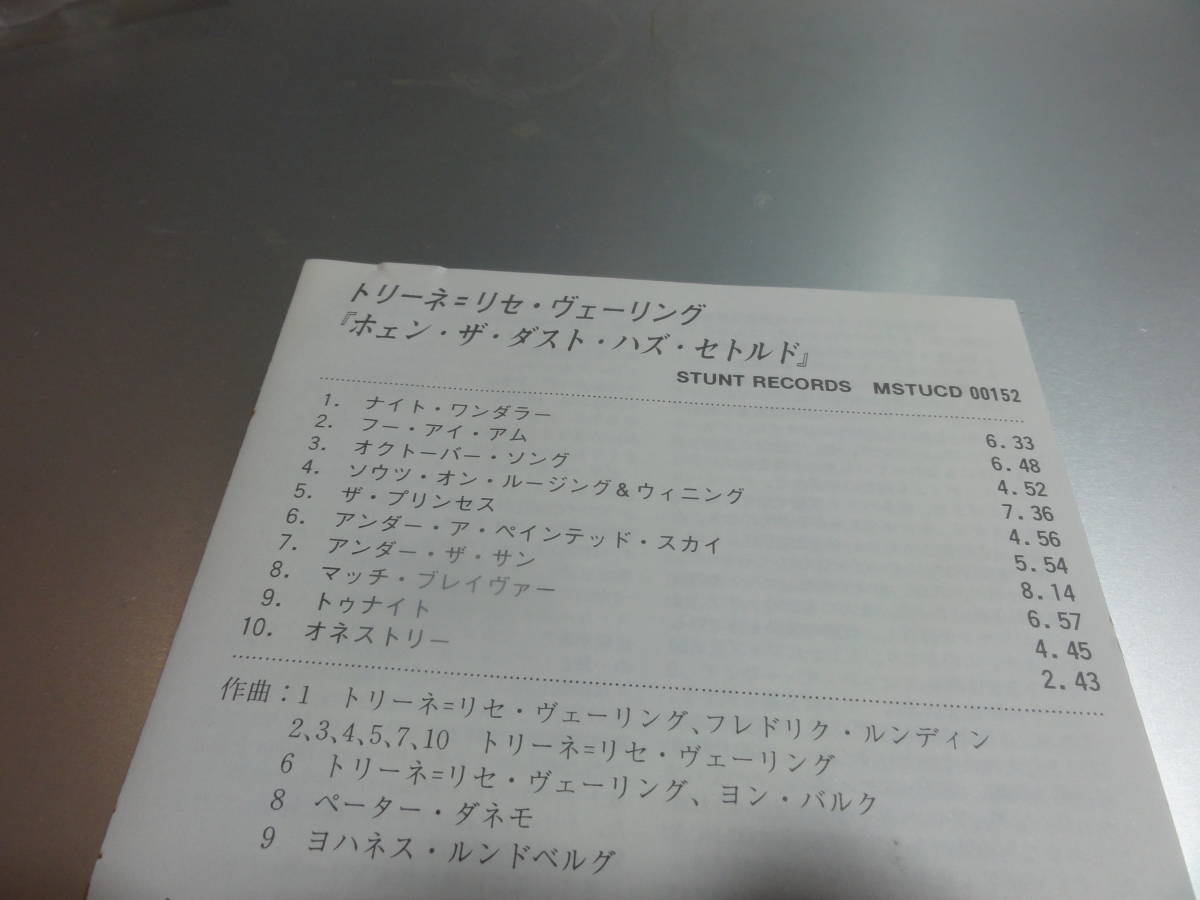 トリーネ=リセ・ヴェーリング
『ホェン・ザ・ダスト・ハズ・セトルド』
STUNT RECORDS MSTUCD 00152
1. ナイト・ワンダラー 6.33
2. フー・アイ・アム 6.48
3. オクトーバー・ソング 4.52
4. ソウツ・オン・ルージング&ウィニング 7.36
5. ザ・プリンセス 4.56
6. アンダー・ア・ペインテッド・スカイ 5.54
7. アンダー・ザ・サン 8.14
8. マッチ・ブレイヴァー 6.57
9. トゥナイト 4.45
10. オネストリー 2.43
作曲:1 トリーネ=リセ・ヴェーリング、フレドリク・ルンディン
2、3、4、5、7、10 トリーネ=リセ・ヴェーリング
6 トリーネ=リセ・ヴェーリング、ヨン・バルク
8 ペーター・ダネモ
9 ヨハネス・ルンドベルグ